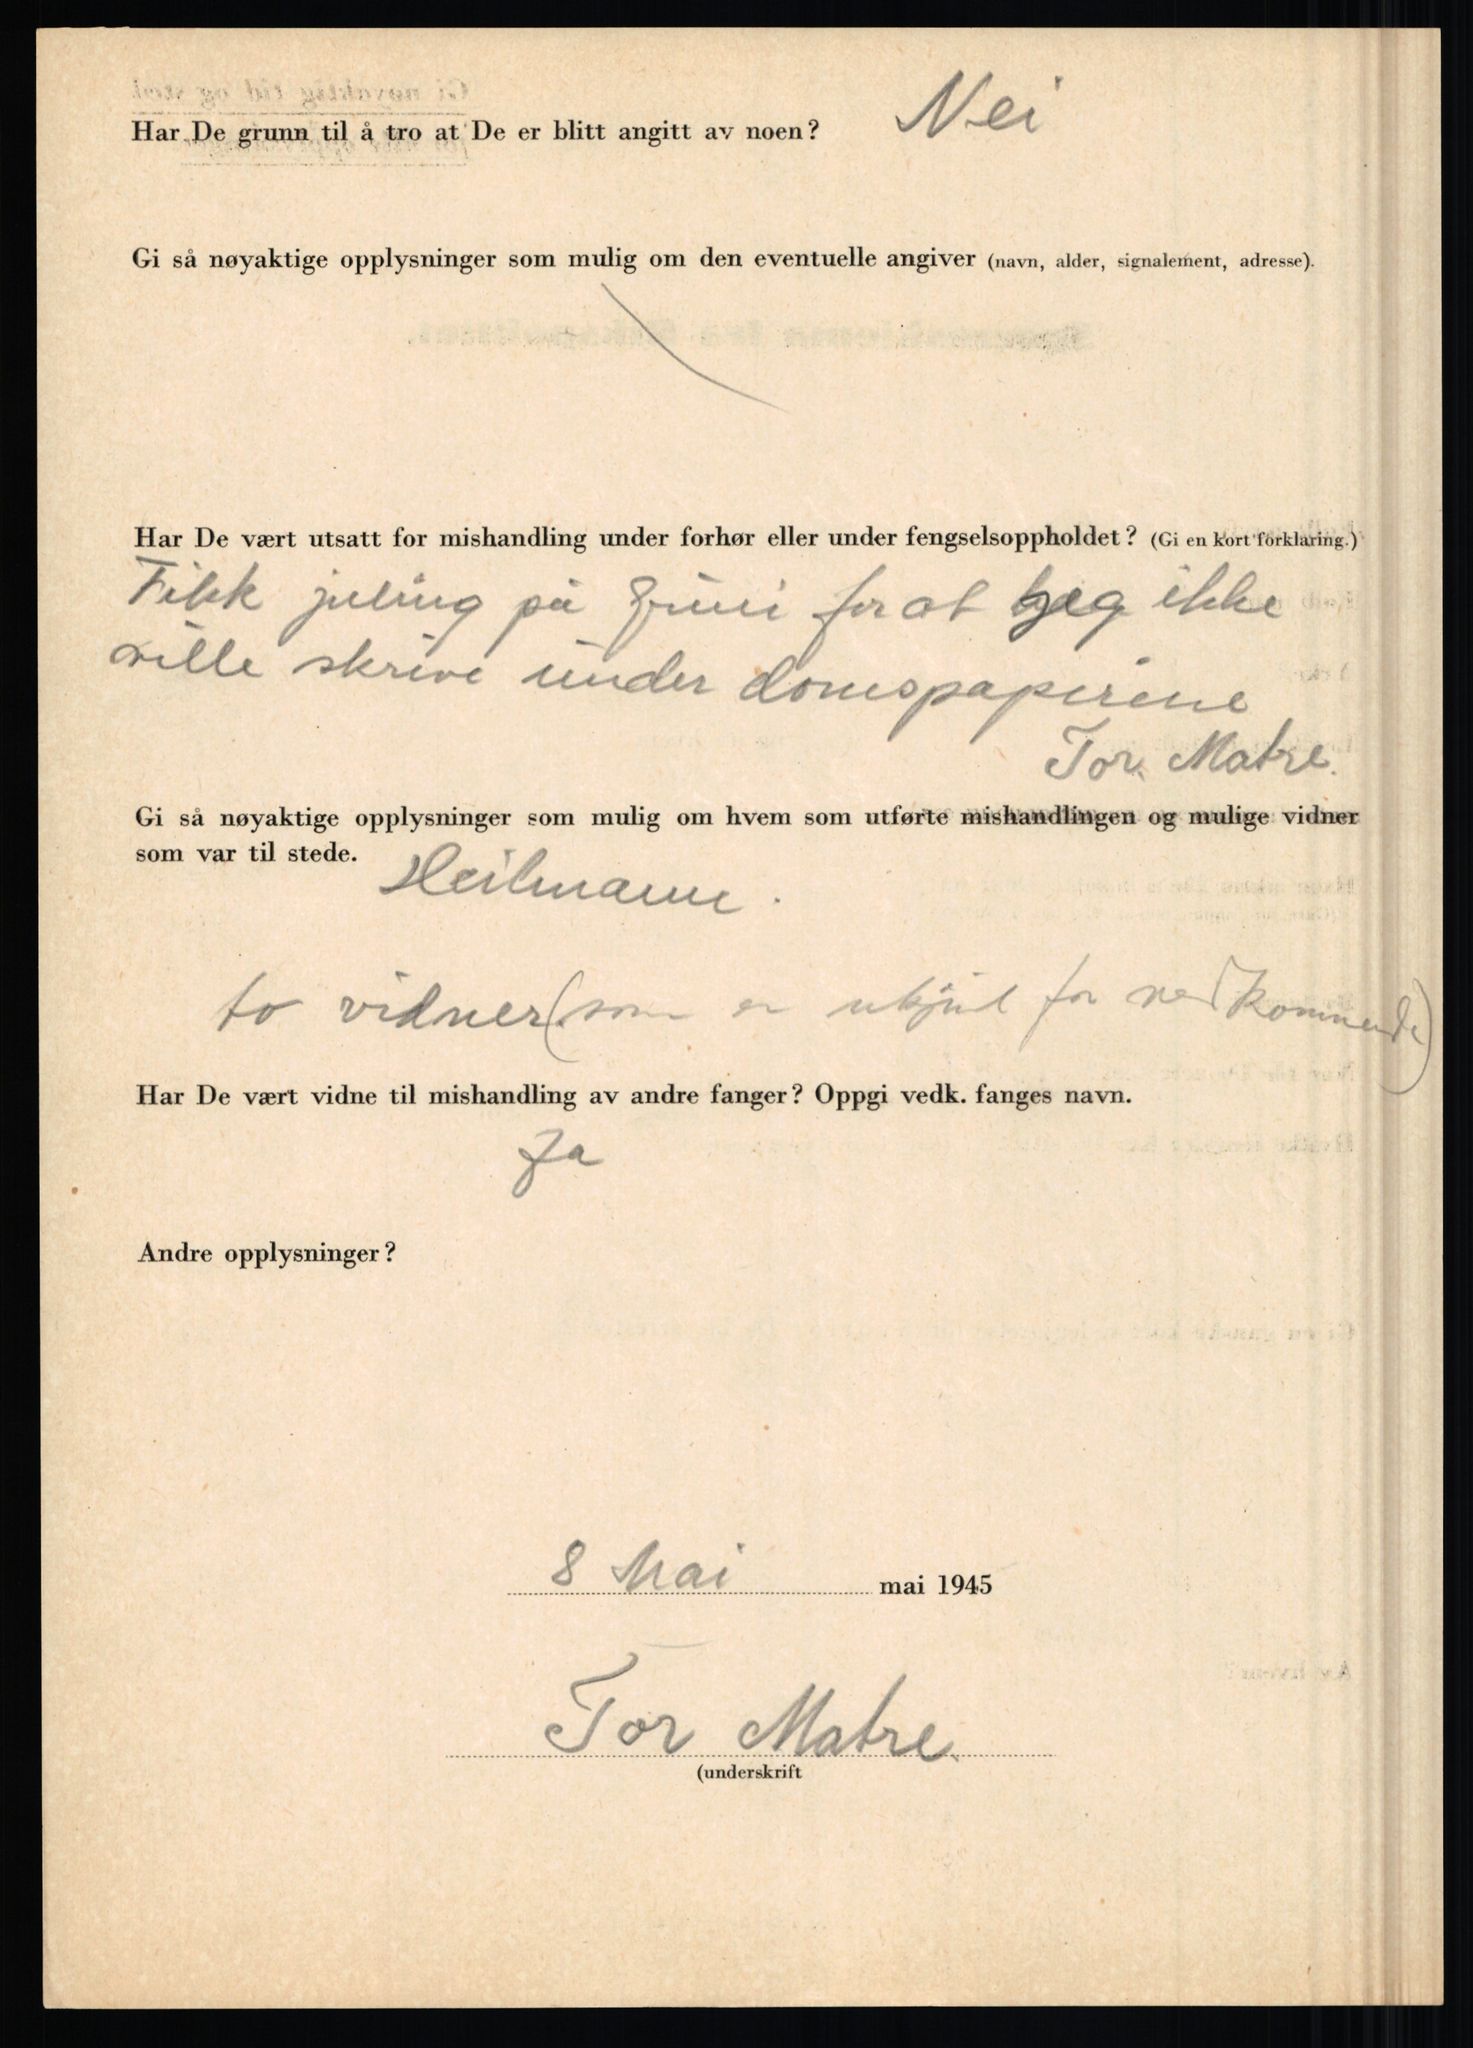 Har De grunn til å tro at De er blitt angitt av noen? Nei
Gi så nøyaktige opplysninger som mulig om den eventuelle angiver (navn, alder, signalement, adresse).
Har De vært utsatt for mishandling under forhør eller under fengselsoppholdet? (Gi en kort forklaring.)
Fikk juling på for at jeg ikke
ville skrive under domspapirene
Tor Matre.
Gi så nøyaktige opplysninger som mulig om hvem som utførte mishandlingen og mulige vidner
som var til stede.
Heilmann.
to vidner (som er ukjent for vedkommende)
Har De vært vidne til mishandling av andre fanger? Oppgi vedk. fanges navn.
Ja
Andre opplysninger?
8 Mai mai 1945
Tor Matre.
(underskrift